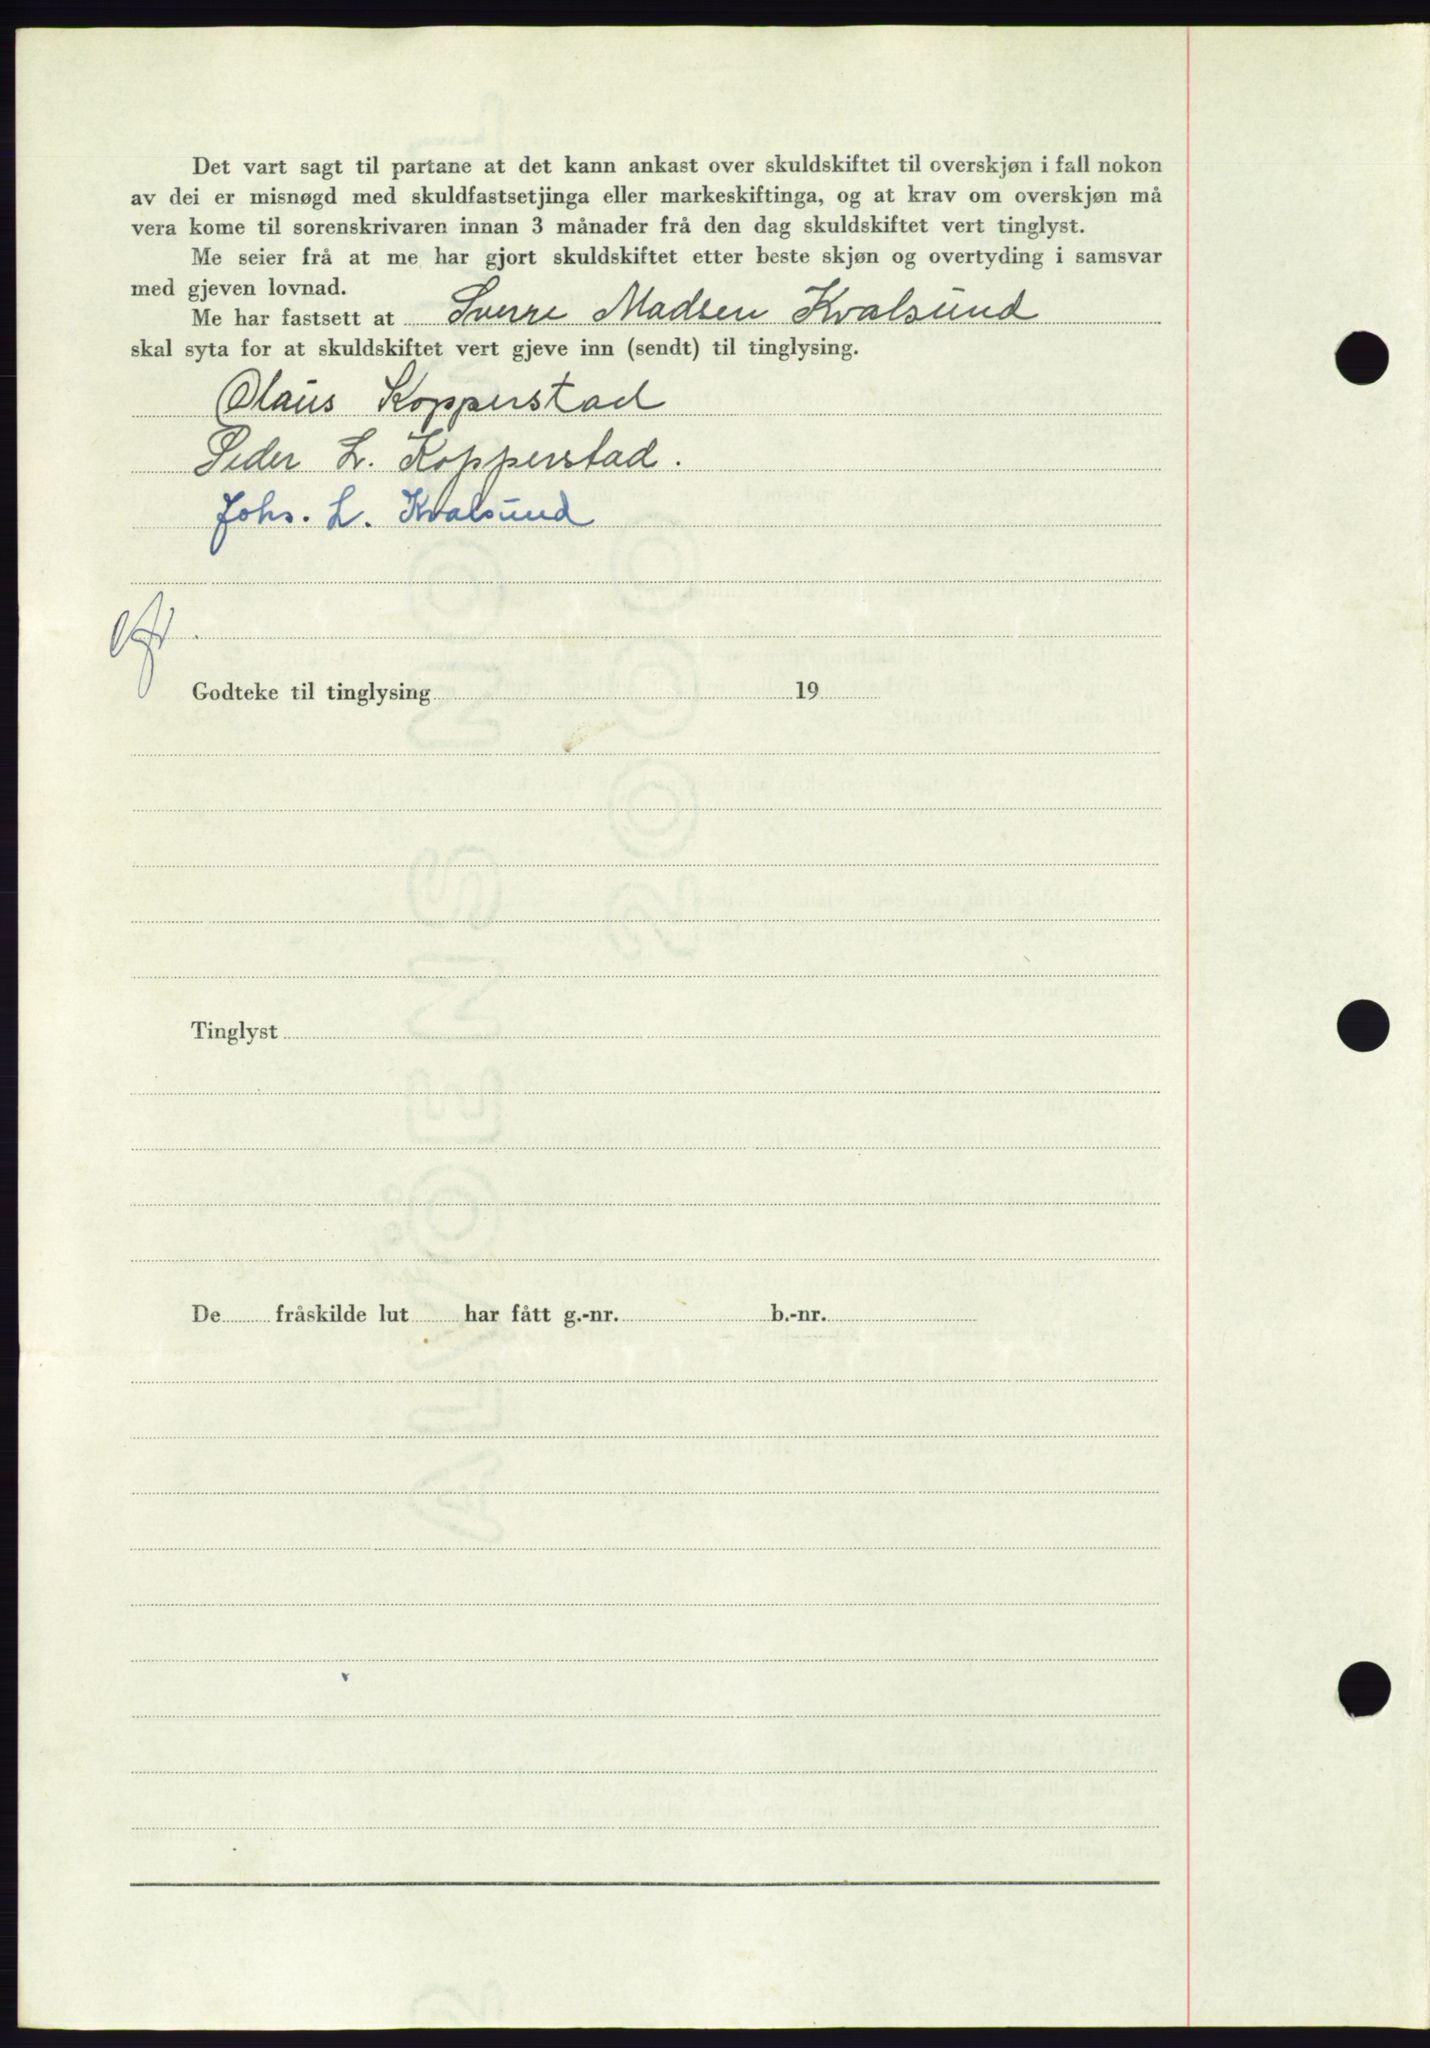 Det vart sagt til partane at det kann ankast over skuldskiftet til overskjøn i fall nokon
av dei er misnøgd med skuldfastsetjinga eller markeskiftinga, og at krav om overskjøn må
vera kome til sorenskrivaren innan 3 månader frå den dag skuldskiftet vert tinglyst.
Me seier frå at me har gjort skuldskiftet etter beste skjøn og overtyding i samsvar
med gjeven lovnad.
Me har fastsett at Sverre Madsen Kvalsund
skal syta for at skuldskiftet vert gjeve inn (sendt) til tinglysing.
Olaus Kopperstad
Peder L. Kopperstad.
Johs. L. Kvalsund
Godteke til tinglysing 19
Tinglyst
De fråskilde lut har fått g.-nr. b.-nr.